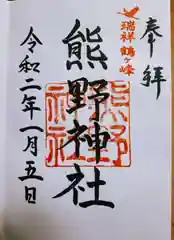 奉拝
瑞祥鶴ヶ峰
熊野神社
熊野神社
令和二年一月五日